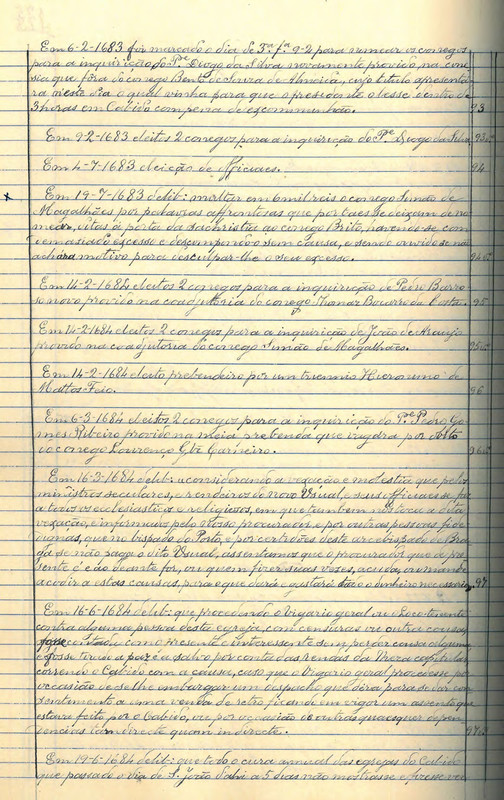 Em 6-2-1683 foi marcado o dia de 3ª fª 9-2 para nomear os conegos
para a inquirição do Pe Diogo da Silva novamente provido na cone-
sia que fôra do conego Bento de Souza de Almeida, cujo titulo apresentá-
ra neste dia o qual vinha para que o presidente o désse dentro de
3 horas em Cabido com pena de excommunhão. 93
Em 9-2-1683 eleitos 2 conegos para a inquirição do Pe Diogo da Silva 93vº
Em 4-7-1683 eleição de officiaes. 94
Em 19-7-1683 delib: multar em 6 mil reis o conego Simão de
Magalhães por palavras affrontosas que por taes se deixam de no-
mear, ditas á porta da sachristia ao conego Brito, havendo-se com
demasiado excesso e descompondo-o sem causa, e sendo ouvido se não
achára motivo para desculpar-lhe o seu excesso. 94vº
Em 14-2-1684 eleitos 2 conegos para a inquirição de Pedro Barro-
so novo provido na coadjutoria do conego Thomaz Bocarro da Costa. 95
Em 14-2-1684 eleitos 2 conegos para a inquirição de João de Araujo
provido na coadjutoria do conego Simão de Magalhães. 95vº
Em 14-2-1684 eleito prebendeiro por um triennio Hieronimo de
Mattos Feio. 96
Em 6-3-1684 eleitos 2 conegos para a inquirição do Pe Pedro Go-
mes Ribeiro provido na meia prebenda que vagára por obito
do conego Lourenço Glz Carneiro. 96vº
Em 16-3-1684 delib: "considerando a vexação e molestia que pelos
ministros seculares, e rendeiros do novo Usual, e seus officiaes se faz
a todos os ecclesiasticos e religiosos, em que tambem nos toca a dita
vexação, e informados pelo nosso procurador, e por outras pessoas fide-
dignas, que no bispado do Porto, e por certidões deste arcebispado de Bra-
ga se não paga o dito Usual, assentamos que o procurador que de pre-
sente é e ao deante fôr, ou quem fizer suas vezes, acuda, ou mande
acodir a estas causas, para o que dará e gastará todo o dinheiro necessario 97
Em 16-6-1684 delib: que procedendo o Vigario geral ou Loco-tenente
contra alguma pessoa desta egreja, com censuras ou outra causa,
fosse contado como presente e interessente sem perder cousa alguma
e fosse tirado a paz e a salvo por conta das rendas da Meza capitular,
correndo o Cabido com a causa, caso que o Vigario geral procedesse por
occasião de se lhe embargar um despacho que déra para se dar con-
sentimento a uma venda de retro ficando em vigor um assento que
estava feito por o Cabido, ou por occasião de outras quaesquer depen-
dencias tam directe quam indirecte. 97vº
Em 19-6-1684 delib: que todo o cura annual das egrejas do Cabido
que passado o dia de S. João dahi a 5 dias não mostrasse e fizesse ver